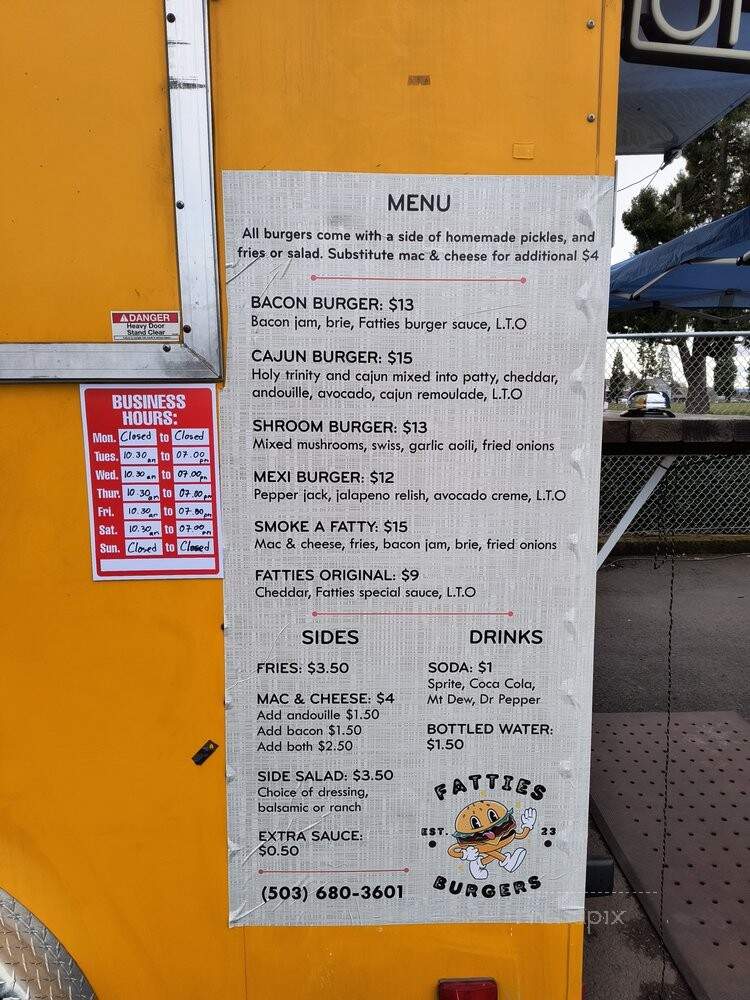 MENU
All burgers come with a side of homemade pickles, and
fries or salad. Substitute mac & cheese for additional $4
BACON BURGER: $13
Bacon jam, brie, Fatties burger sauce, L.T.O
CAJUN BURGER: $15
Holy trinity and cajun mixed into patty, cheddar,
andouille, avocado, cajun remoulade, L.T.O
SHROOM BURGER: $13
Mixed mushrooms, swiss, garlic aoili, fried onions
MEXI BURGER: $12
Pepper jack, jalapeno relish, avocado creme, L.T.O
SMOKE A FATTY: $15
Mac & cheese, fries, bacon jam, brie, fried onions
FATTIES ORIGINAL: $9
Cheddar, Fatties special sauce, L.T.O
SIDES
FRIES: $3.50
MAC & CHEESE: $4
Add andouille $1.50
Add bacon $1.50
Add both $2.50
SIDE SALAD: $3.50
Choice of dressing,
balsamic or ranch
EXTRA SAUCE:
$0.50
(503) 680-3601
DRINKS
SODA: $1
Sprite, Coca Cola,
Mt Dew, Dr Pepper
BOTTLED WATER:
$1.50
FATTIES
EST. 23
BURGERS
DANGER
Heavy Door
Stand Clear
BUSINESS
HOURS:
Mon. Closed to Closed
Tues. 10.30 am to 07.00 pm
Wed. 10.30 am to 07.00 pm
Thur. 10.30 am to 07.00 pm
Fri. 10.30 am to 07.00 pm
Sat. 10.30 am to 07.00 pm
Sun. Closed to Closed